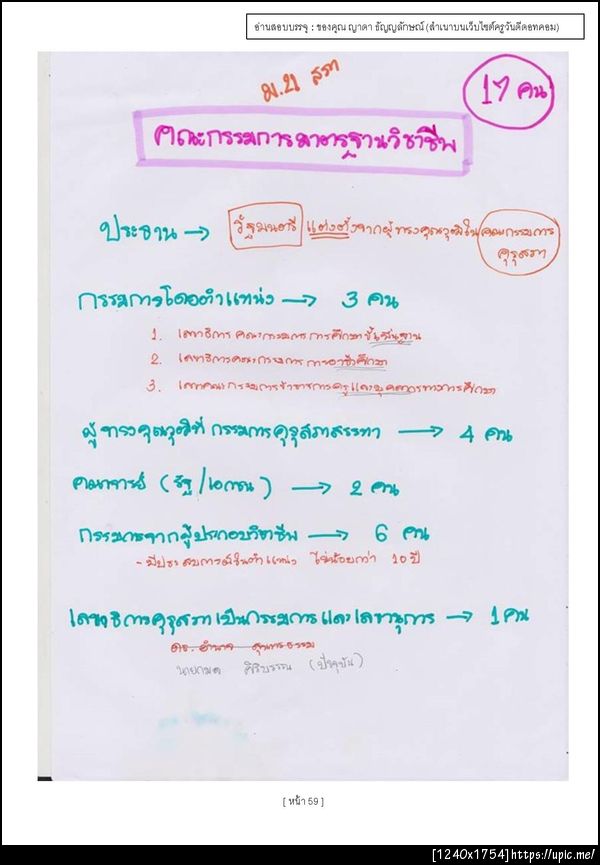 อ่านสอบบรรจุ : ของคุณ ญาดา ธัญญลักษณ์ (สำเนาบนเว็บไซต์ครูวันดีดอทคอม)
ม.21 สรภ
17 คน
คณะกรรมการมาตรฐานวิชาชีพ
ประธาน → รัฐมนตรี แต่งตั้งจากผู้ทรงคุณวุฒิใน คณะกรรมการ
คุรุสภา
กรรมการโดยตำแหน่ง → 3 คน
1. เลขาธิการคณะกรรมการการศึกษาขั้นพื้นฐาน
2. เลขาธิการคณะกรรมการการอาชีวศึกษา
3. เลขาคณะกรรมการข้าราชการครูและบุคลากรทางการศึกษา
ผู้ทรงคุณวุฒิที่กรรมการคุรุสภาสรรหา → 4 คน
คณาจารย์ (รัฐ/เอกชน) → 2 คน
กรรมการจากผู้ประกอบวิชาชีพ → 6 คน
- มีประสบการณ์ในตำแหน่ง ไม่น้อยกว่า 10 ปี
เลขาธิการคุรุสภาเป็นกรรมการและเลขานุการ → 1 คน
ดร. อำนาจ สุนทรธรรม
นายกมล ศิริบรรณ (ปัจจุบัน)
[ หน้า 59 ]
[1240x1754]https://upic.me/